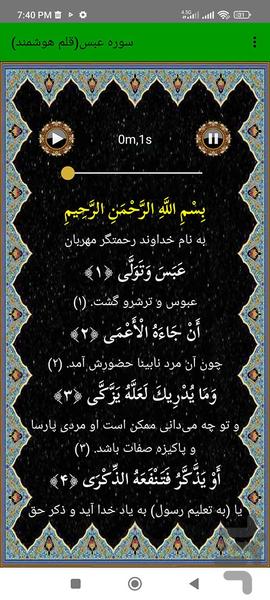 7:40 PM
سوره عبس(قلم هوشمند)
0m,1s
بِسْمِ اللَّهِ الرَّحْمَنِ الرَّحِيمِ
به نام خداوند رحمتگر مهربان
عَبَسَ وَتَوَلَّى ﴿۱﴾
عبوس و ترشرو گشت. (۱)
أَنْ جَاءَهُ الْأَعْمَى ﴿۲﴾
چون آن مرد نابینا حضورش آمد. (۲)
وَمَا يُدْرِيكَ لَعَلَّهُ يَزَّكَّى ﴿۳﴾
و تو چه می‌دانی ممکن است او مردی پارسا
و پاکیزه صفات باشد. (۳)
أَوْ يَذَّكَّرُ فَتَنْفَعَهُ الذِّكْرَى ﴿۴﴾
یا (به تعلیم رسول) به یاد خدا آید و ذکر حق